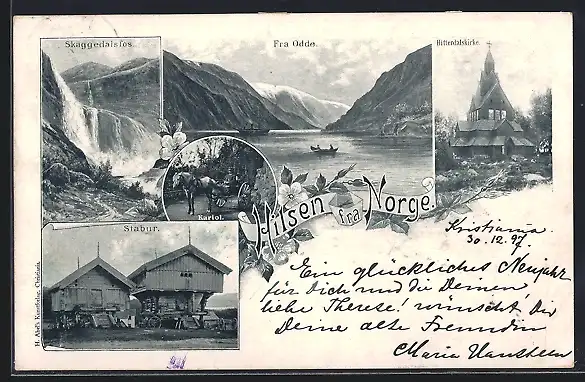 Skæggedalsfos.
Fra Odde.
Hitterdalskirke.
Kariol.
Hilsen fra Norge.
Stabur.
Kristiania.
30.12.97.
Ein glückliches Neujahr
für Dich und die Deinen
liebe Therese! wünscht Dir
Deine alte Freundin
Maria Hansteen
H. Abel's Kunstforlag, Christiania.